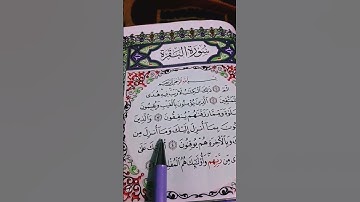 سُورَةُ البَقَرَةِ
بِسْمِ اللَّهِ الرَّحْمَٰنِ الرَّحِيمِ
الم ۝١ ذَٰلِكَ الْكِتَابُ لَا رَيْبَ فِيهِ هُدًى
لِلْمُتَّقِينَ ۝٢ الَّذِينَ يُؤْمِنُونَ بِالْغَيْبِ وَيُقِيمُونَ
الصَّلَاةَ وَمِمَّا رَزَقْنَاهُمْ يُنْفِقُونَ ۝٣ وَالَّذِينَ
يُؤْمِنُونَ بِمَا أُنْزِلَ إِلَيْكَ وَمَا أُنْزِلَ مِنْ
وَبِالْآخِرَةِ هُمْ يُوقِنُونَ ۝٤ أُولَٰئِكَ عَلَىٰ
هُدًى مِنْ رَبِّهِمْ وَأُولَٰئِكَ هُمُ الْمُفْلِحُونَ